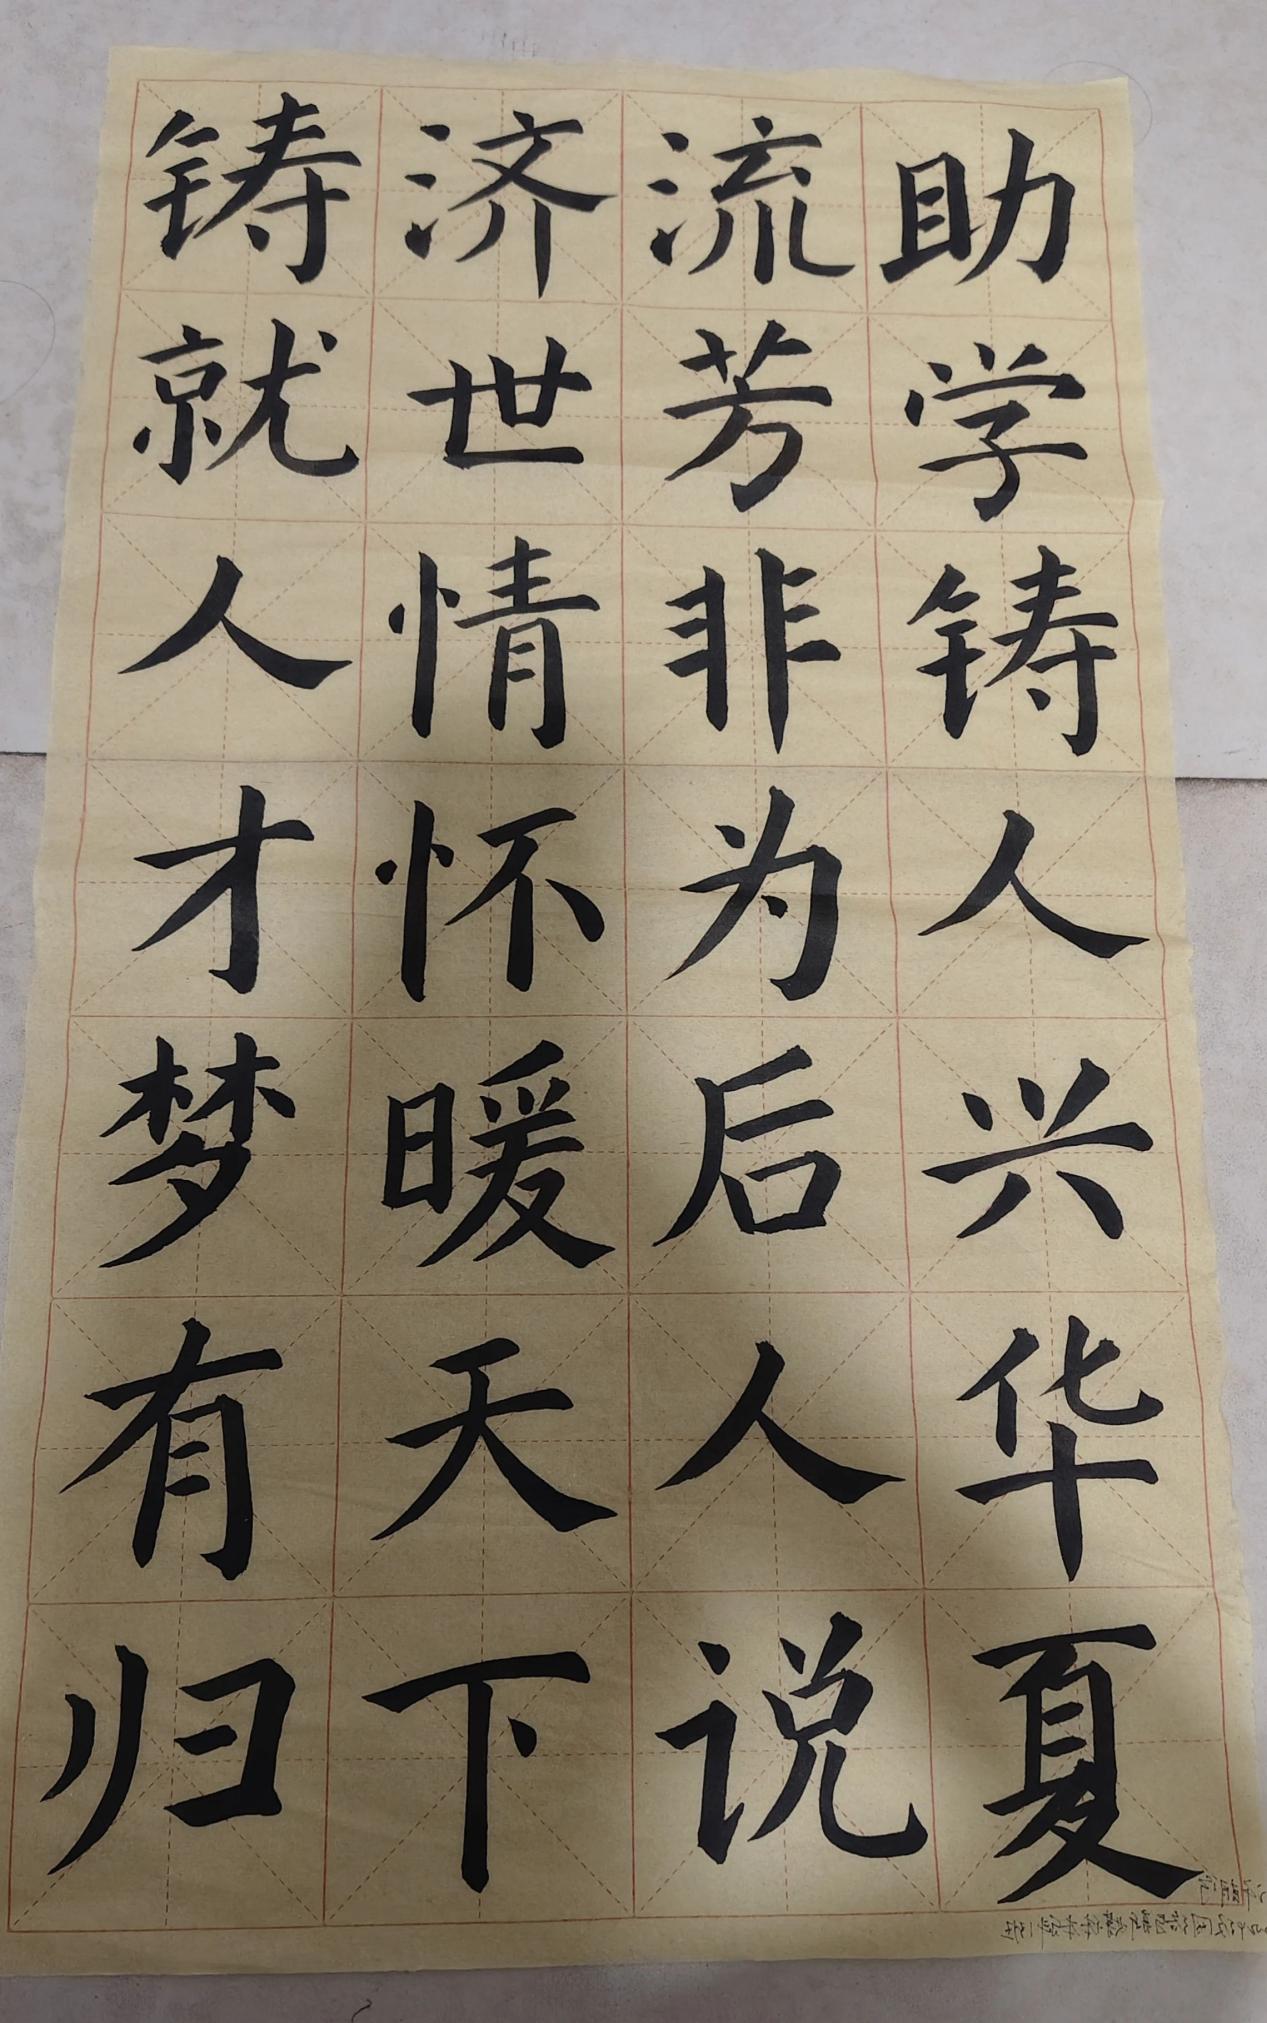 助学铸人兴华夏
流芳非为后人说
济世情怀暖天下
铸就人才梦有归